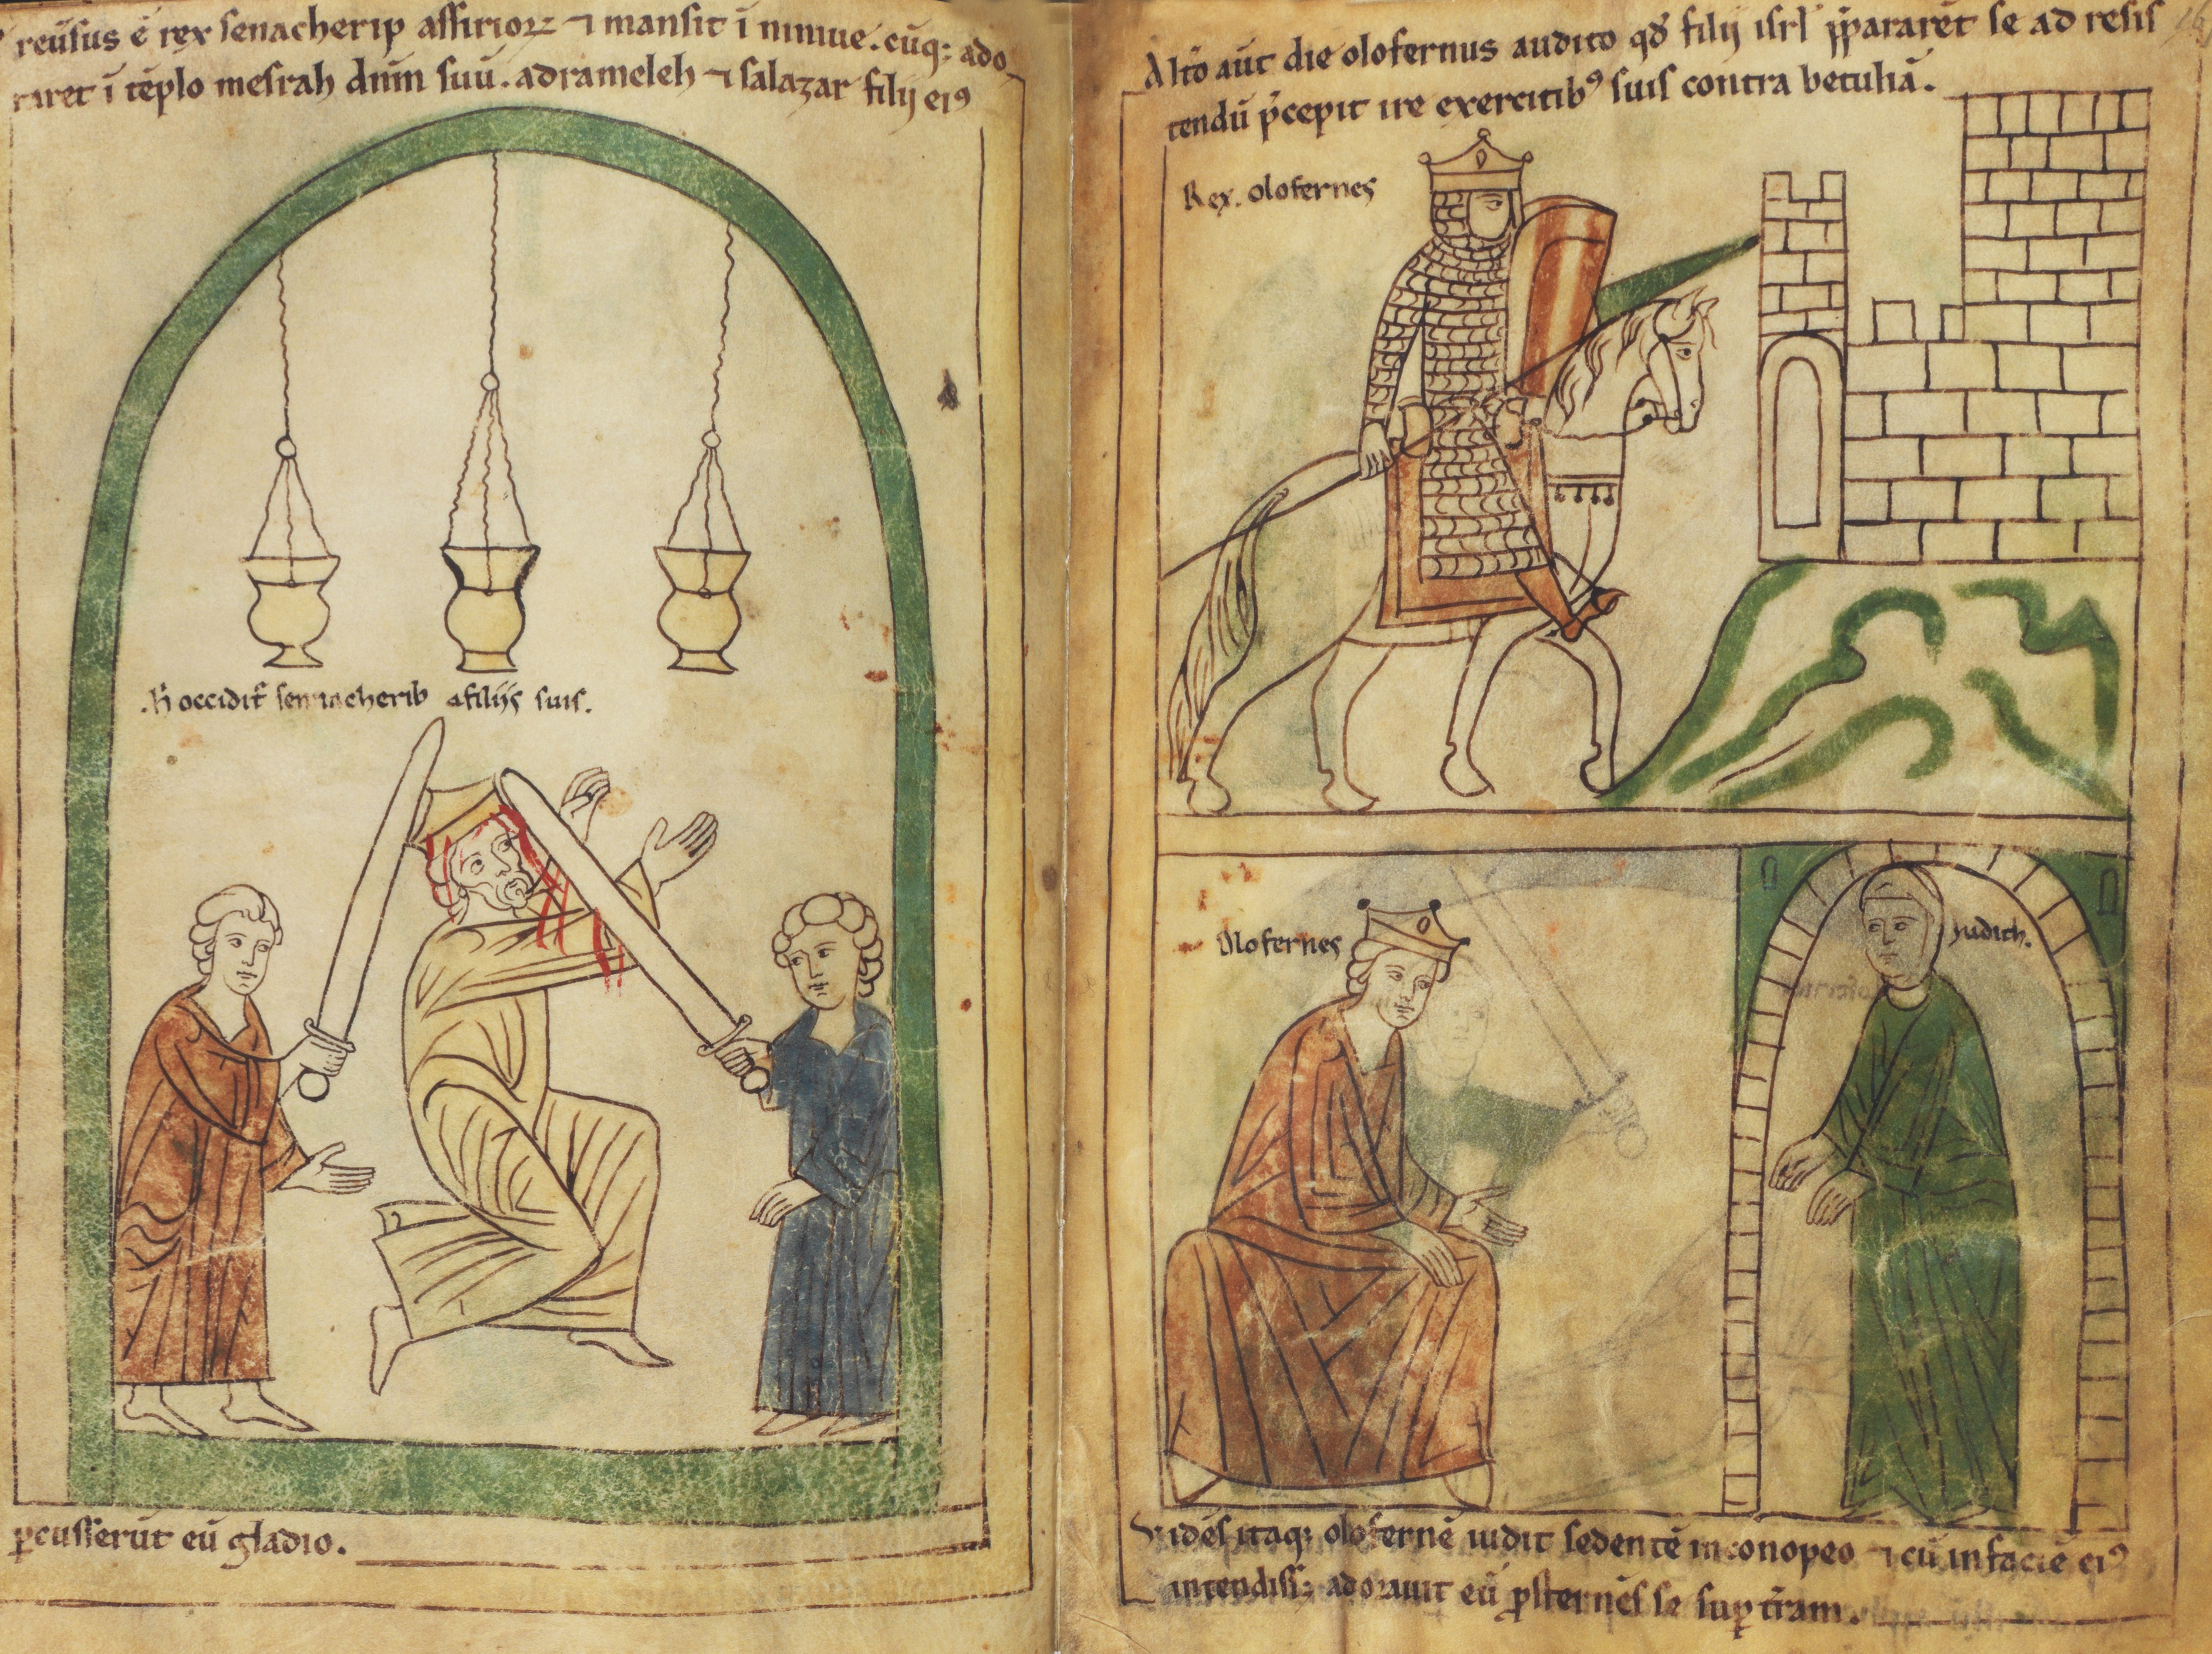 reũsus ẽ rex senacherip assirioꝝ ⁊ mansit ĩ niniue. cũqꝫ ado
raret ĩ tẽplo mesrah dñm suũ. adrameleh ⁊ salazar filij eiꝰ
.h̃ occidit᷑ sennacherib a filijs suis.
ꝑcusserũt eũ gladio.
Alt̃o aũt die olofernus audito qđ filij isrl̃ p̃pararẽt se ad resis
tendũ p̃cepit ire exercitibꝰ suis contra betuliã.
Rex. olofernes
Olofernes
iudith.
Vidẽs itaqꝫ olofernẽ iudit sedentẽ in conopeo ⁊ cũ in faciẽ eiꝰ
intendissꝫ adorauit eũ ꝓsternẽs se suꝑ t̃ram.